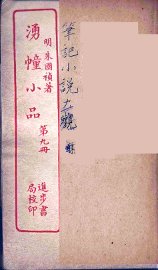 明朱國禎著
湧幢小品
第九冊
進步書局校印
筆記小說